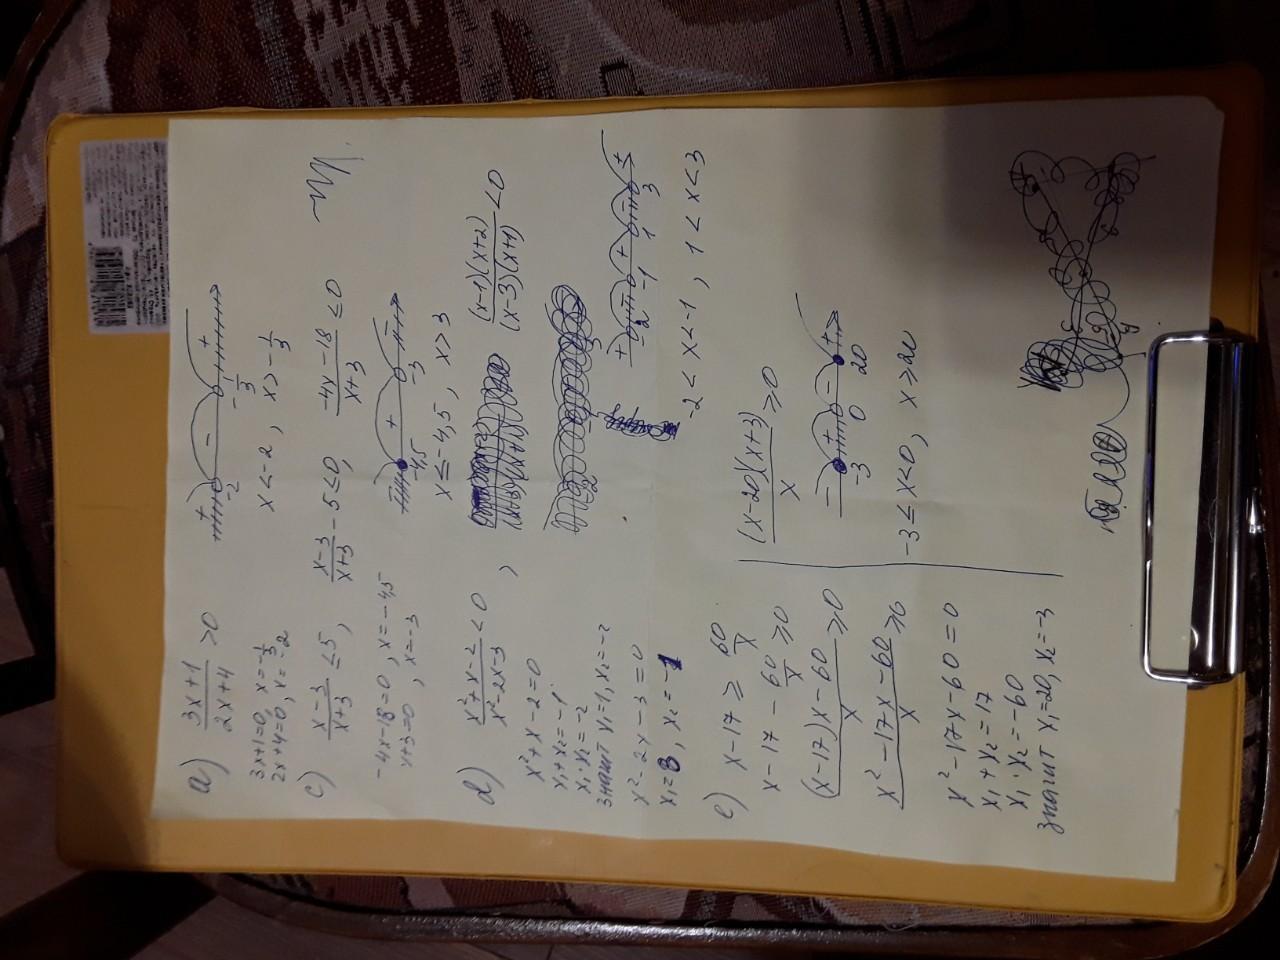 a) (3x+1)/(2x+4) > 0
3x+1=0, x=-1/3
2x+4=0, x=-2
+ - +
-2 -1/3
x<-2, x>-1/3
c) (x-3)/(x+3) ≤ 5, (x-3)/(x+3) - 5 ≤ 0, (-4x-18)/(x+3) ≤ 0
-4x-18=0, x=-4,5
x+3=0, x=-3
- + -
-4,5 -3
x ≤ -4,5, x>3
d) (x²+x-2)/(x²-2x-3) < 0, (x-1)(x+2)/(x-3)(x+1) < 0
x²+x-2=0
x₁+x₂=-1
x₁·x₂=-2
значит x₁=1, x₂=-2
x²-2x-3=0
x₁=3, x₂=-1
+ - + - +
-2 -1 1 3
-2<x<-1, 1<x<3
e) x-17 ≥ 60/x
x-17-60/x ≥ 0
((x-17)x-60)/x ≥ 0
(x²-17x-60)/x ≥ 0
x²-17x-60=0
x₁+x₂=17
x₁·x₂=-60
значит x₁=20, x₂=-3
(x-20)(x+3)/x ≥ 0
- + - +
-3 0 20
-3≤x<0, x≥20